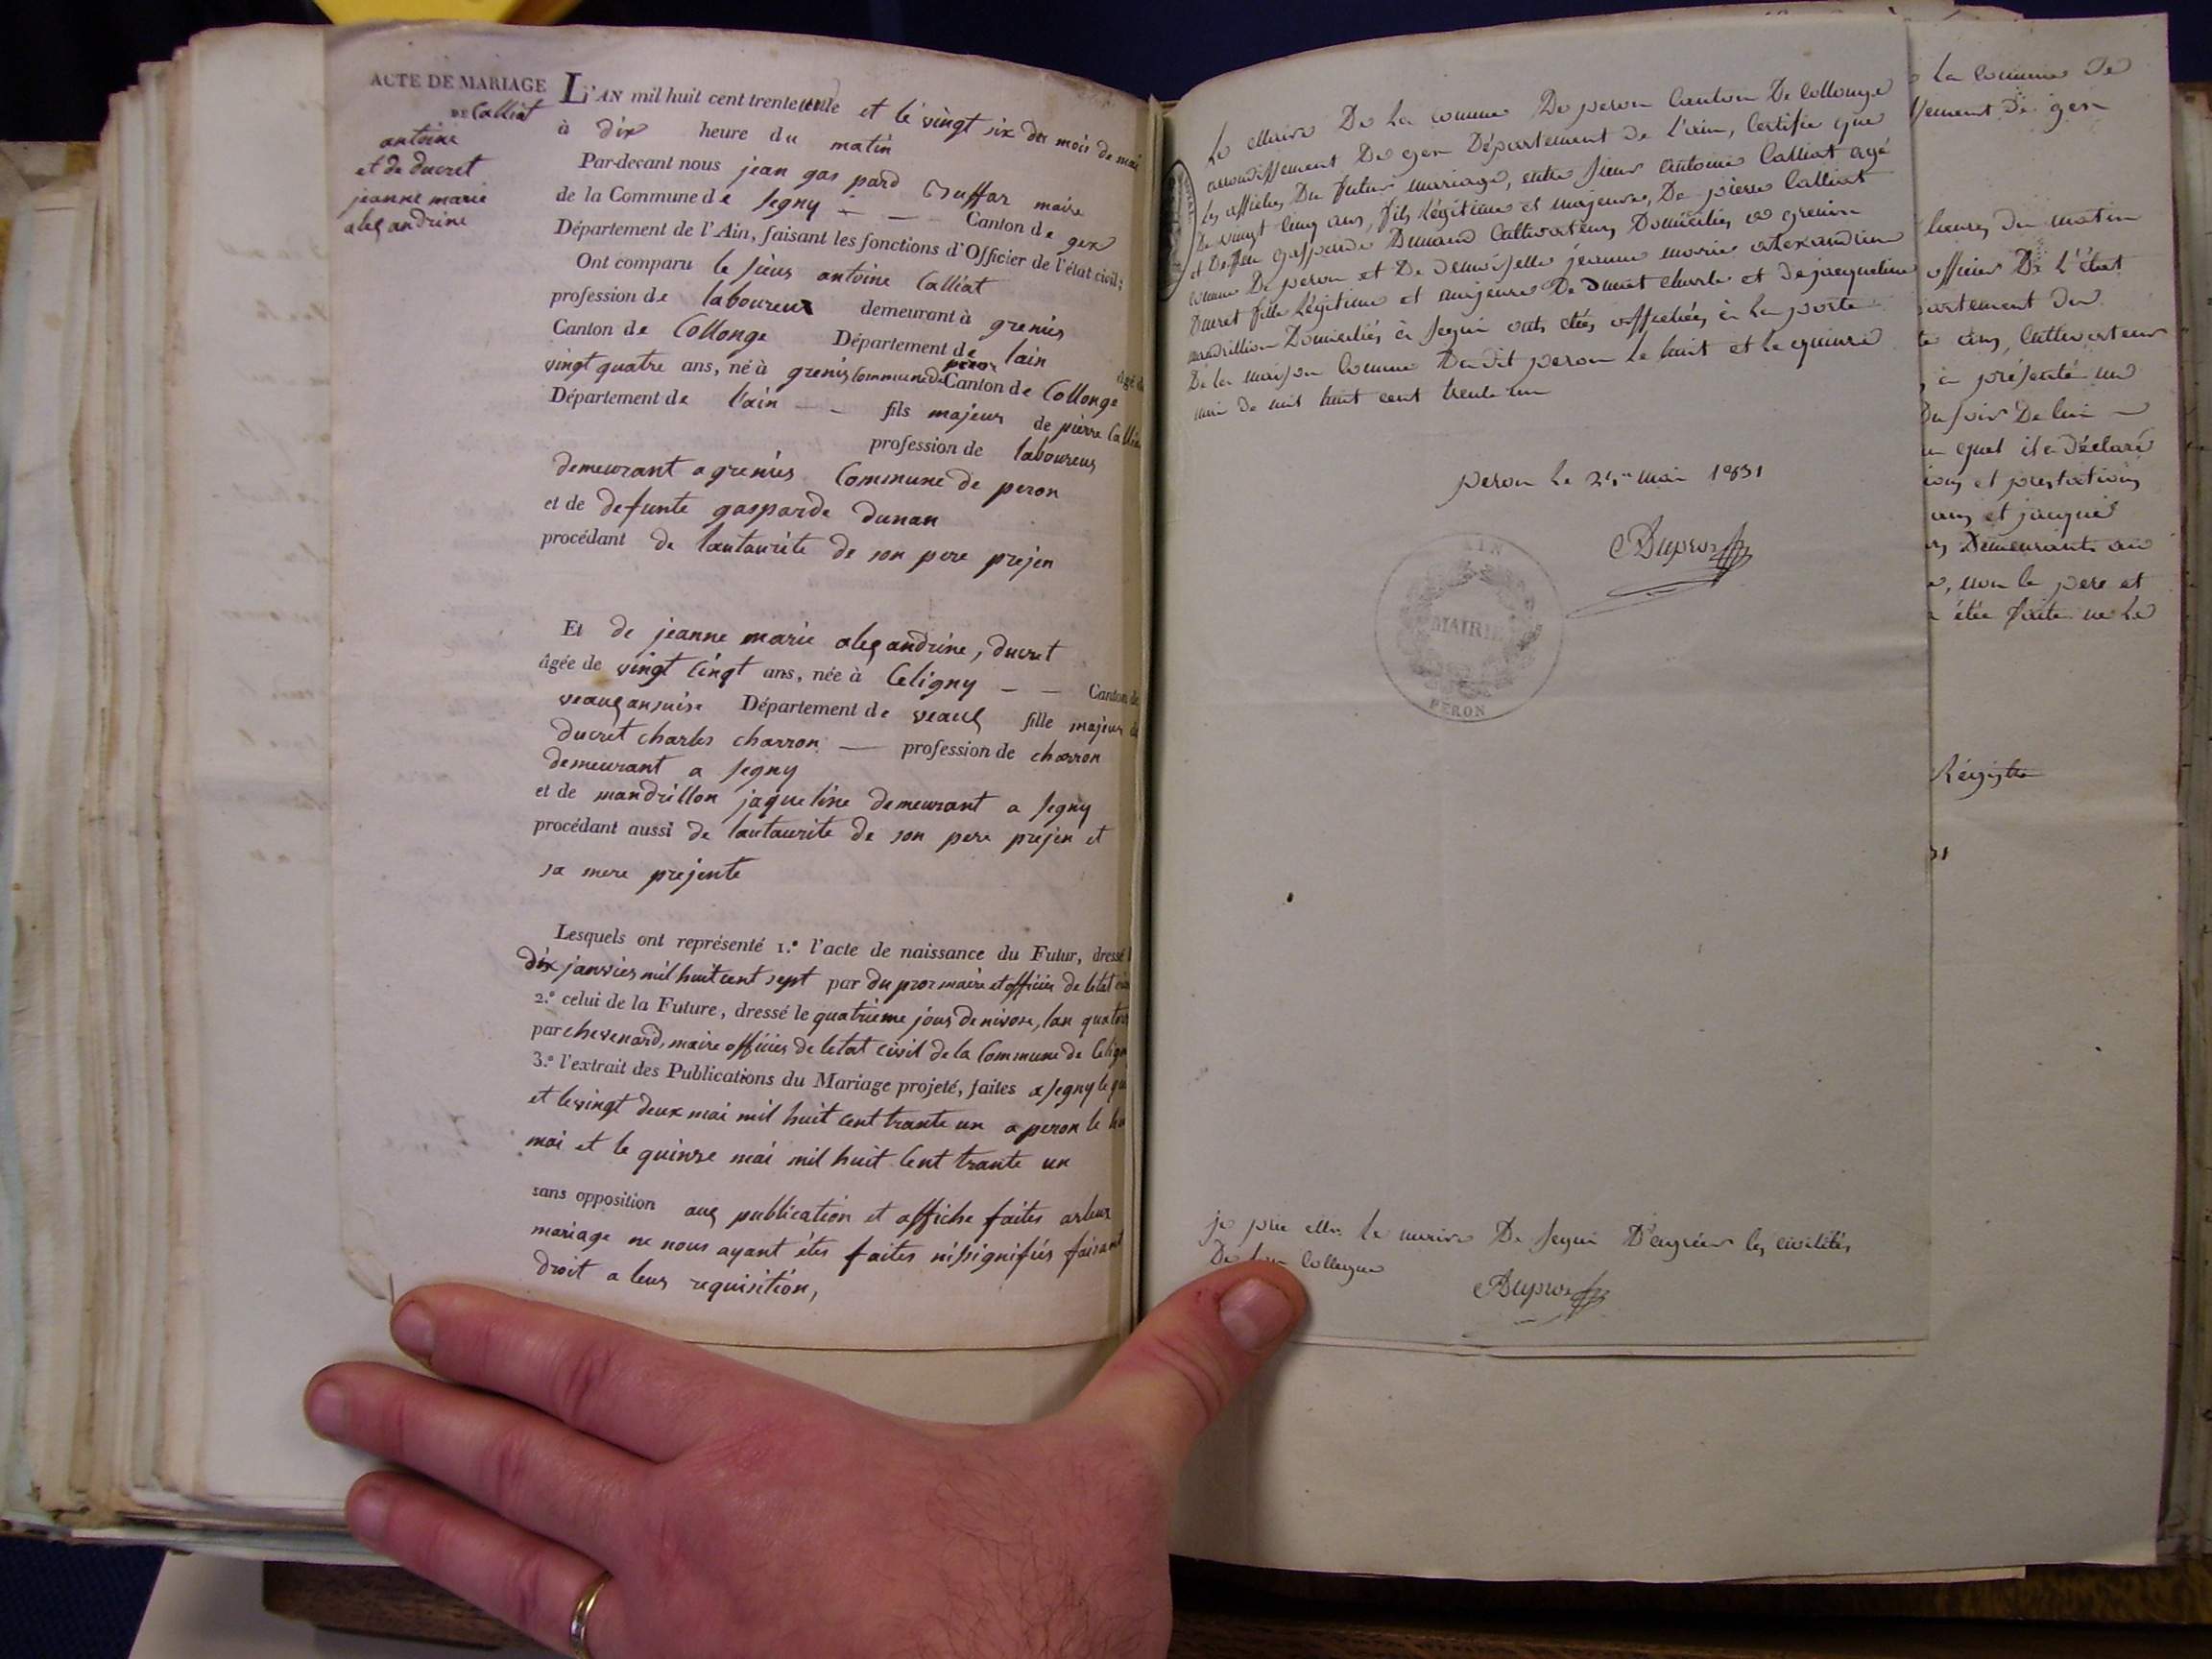 ACTE DE MARIAGE
DE Calliat
antoine
et de ducret
jeanne marie
alexandrine
L'AN mil huit cent trente et le vingt six du mois de mai
à dix heure du matin
Par-devant nous jean gas pard maire
de la Commune de segny - - - Canton de gex
Département de l'Ain, faisant les fonctions d'Officier de l'état civil;
Ont comparu le sieur antoine Calliat
profession de laboureur demeurant à grenis
Canton de Collonge Département de lain âgé de
vingt quatre ans, né à grenis Commune de peron Canton de Collonge
Département de l'ain - - fils majeur de pierre Callia
profession de laboureur
demeurant a grenis Commune de peron
et de defunte gasparde dunan
procédant de lautaurite de son pere prejen
Et de jeanne marie alexandrine, ducret
âgée de vingt cinqt ans, née à Celigny - - Canton de
veauxansuise Département de veaux fille majeur de
ducret charles charron — profession de charron
demeurant a segny
et de mandrillon jaqueline demeurant a segny
procédant aussi de lautaurite de son pere prejen et
sa mere prejente
Lesquels ont représenté 1.º l'acte de naissance du Futur, dressé l
dix janvier mil huit cent sept par du proz maire et officier de letat civi
2.º celui de la Future, dressé le quatrieme jour de nivose, lan quatre
par chevenard, maire officier de letat civil de la Commune de Celign
3.º l'extrait des Publications du Mariage projeté, faites a segny le qu
et le vingt deux mai mil huit cent trante un a peron le hu
mai et le quinse mai mil huit Cent trante un
sans opposition aux publication et affiche faites
mariage ne nous ayant étes faites ni signifiés faisant
droit a leur requisition,
Le Maire De La commune De peron Canton De Collonge
arrondissement De gex Département de L'ain, Certifie que
les affiches Du futur mariage, entre sieur antoine Calliat agé
De vingt cinq ans, fils légitime et majeure, De pierre Calliat
et De feu gasparde Dunand Cultivateurs Domiciliés a grenin
comune De peron et De Demoiselle jeanne marie alexandrine
Ducret fille légitime et majeure De Ducret charle et de jacqueline
mandrillion Domiciliés à segni onts étés affichées à la porte
De la maison Comune Dudit peron le huit et le quinze
mai de mil huit cent trente un
peron le 25 mai 1831
Duproz
AIN
MAIRIE
PERON
je prie Mr. le maire De segni D'agréer les civilités
De son Collegue
Duproz
La commune De
ssement de gex
heures du matin
officier De L'état
partement du
ans, Cultivateur
à présenté un
Du soir De lui
quel il a Déclaré
et prestations
ans et jacque
Demeurants au
non le pere et
étée faite ne le
Régistre
31